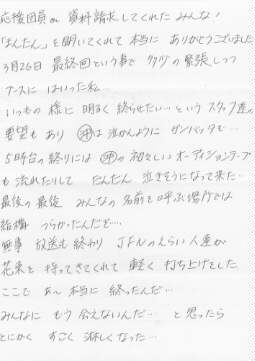 応援団員の資料請求してくれたみんな!
「まんたん」を聞いてくれて本当にありがとうございました
3月26日 最終回という事で 少々の緊張しつつ
ブースにはいった私…
いつもの様に明るく終らせたい…というスタッフ達の
要望もあり 私は泣かんようにガンバッても…
5時台の終りには の初々しいオーディションテープ
も流れたりして だんだん泣きそうになって来た…
最後の最後 みんなの名前を呼ぶ場所では
結構つらかったんだぞ…
無事 放送も終わり JFNのえらい人達が
花束を持ってきてくれて 軽く打ち上げをした
ここで あ〜本当に終ったんだ…
みんなに もう会えないんだ… と思ったら
とにかく すごく淋しくなった…